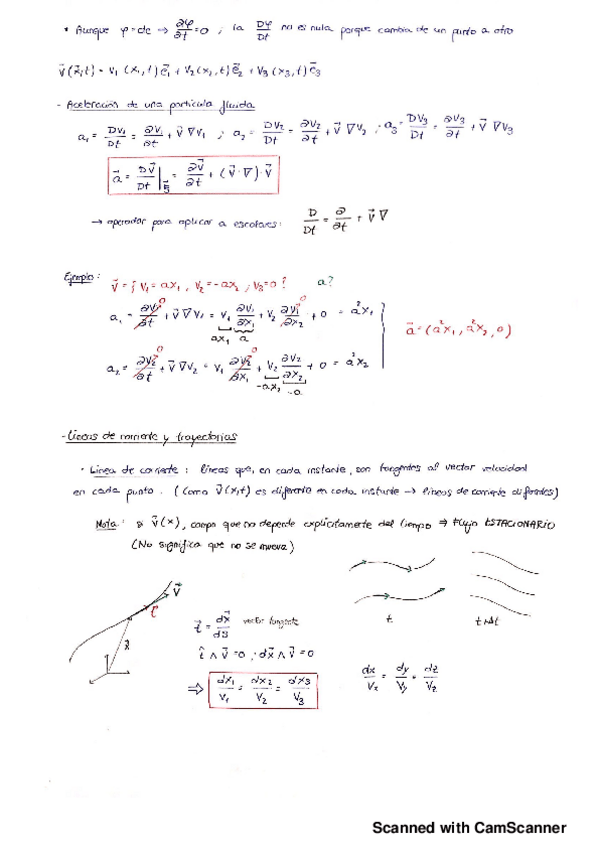 • Aunque φ=dc → ∂φ/∂t = 0 ; la Dφ/Dt no es nula porque cambia de un punto a otro
v⃗(x⃗,t) = v₁(x₁,t)e⃗₁ + v₂(x₂,t)e⃗₂ + v₃(x₃,t)e⃗₃
- Aceleración de una partícula fluida
a₁ = Dv₁/Dt = ∂v₁/∂t + v⃗ ∇v₁ ; a₂ = Dv₂/Dt = ∂v₂/∂t + v⃗ ∇v₂ ; a₃ = Dv₃/Dt = ∂v₃/∂t + v⃗ ∇v₃
a⃗ = Dv⃗/Dt | = ∂v⃗/∂t + (v⃗·∇)·v⃗
→ operador para aplicar a escalares: D/Dt = ∂/∂t + v⃗ ∇
Ejemplo: v⃗ = ¿ v₁ = ax₁, v₂ = -ax₂, v₃ = 0? a?
a₁ = ∂v₁/∂t 0 + v⃗ ∇v₁ = v₁ ∂v₁/∂x₁ + v₂ ∂v₁/∂x₂ 0 + 0 = a²x₁
ax₁ a
a⃗ = (a²x₁, a²x₂, 0)
a₂ = ∂v₂/∂t 0 + v⃗ ∇v₂ = v₁ ∂v₂/∂x₁ 0 + v₂ ∂v₂/∂x₂ + 0 = a²x₂
-ax₂ -a
- Líneas de corriente y trayectorias
• Línea de corriente : líneas que, en cada instante, son tangentes al vector velocidad
en cada punto. (Como v⃗(x,t) es diferente en cada instante → líneas de corriente diferentes)
Nota: si v⃗(x), campo que no depende explícitamente del tiempo ⇒ Flujo ESTACIONARIO
(No significa que no se mueva)
v⃗
t
x⃗
t⃗ = dx⃗/ds vector tangente
t t+Δt
t⃗ ∧ v⃗ = 0 ; dx⃗ ∧ v⃗ = 0
⇒ dx₁/v₁ = dx₂/v₂ = dx₃/v₃
dx/Vx = dy/Vy = dz/Vz
Scanned with CamScanner